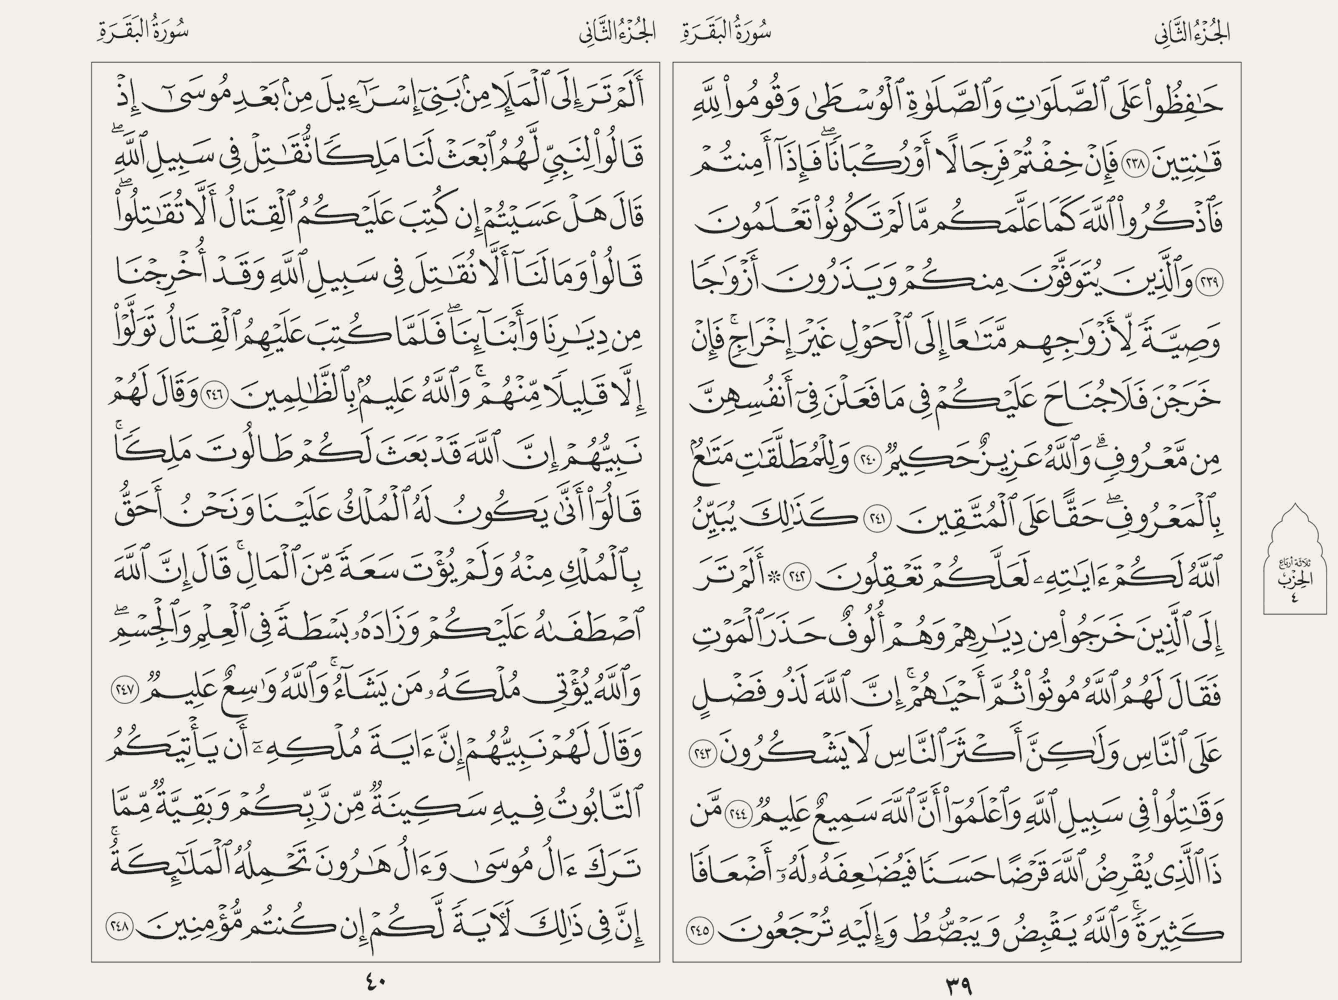 الجُزْءُ الثَّانِي
سُورَةُ البَقَرَةِ
حَٰفِظُوا۟ عَلَى ٱلصَّلَوَٰتِ وَٱلصَّلَوٰةِ ٱلْوُسْطَىٰ وَقُومُوا۟ لِلَّهِ
قَٰنِتِينَ ٢٣٨ فَإِنْ خِفْتُمْ فَرِجَالًا أَوْ رُكْبَانًاۖ فَإِذَآ أَمِنتُمْ
فَٱذْكُرُوا۟ ٱللَّهَ كَمَا عَلَّمَكُم مَّا لَمْ تَكُونُوا۟ تَعْلَمُونَ
٢٣٩ وَٱلَّذِينَ يُتَوَفَّوْنَ مِنكُمْ وَيَذَرُونَ أَزْوَٰجًا
وَصِيَّةً لِّأَزْوَٰجِهِم مَّتَٰعًا إِلَى ٱلْحَوْلِ غَيْرَ إِخْرَاجٍۚ فَإِنْ
خَرَجْنَ فَلَا جُنَاحَ عَلَيْكُمْ فِى مَا فَعَلْنَ فِىٓ أَنفُسِهِنَّ
مِن مَّعْرُوفٍۗ وَٱللَّهُ عَزِيزٌ حَكِيمٌ ٢٤٠ وَلِلْمُطَلَّقَٰتِ مَتَٰعٌۢ
بِٱلْمَعْرُوفِۖ حَقًّا عَلَى ٱلْمُتَّقِينَ ٢٤١ كَذَٰلِكَ يُبَيِّنُ
ٱللَّهُ لَكُمْ ءَايَٰتِهِۦ لَعَلَّكُمْ تَعْقِلُونَ ٢٤٢ ۞ أَلَمْ تَرَ
إِلَى ٱلَّذِينَ خَرَجُوا۟ مِن دِيَٰرِهِمْ وَهُمْ أُلُوفٌ حَذَرَ ٱلْمَوْتِ
فَقَالَ لَهُمُ ٱللَّهُ مُوتُوا۟ ثُمَّ أَحْيَٰهُمْۚ إِنَّ ٱللَّهَ لَذُو فَضْلٍ
عَلَى ٱلنَّاسِ وَلَٰكِنَّ أَكْثَرَ ٱلنَّاسِ لَا يَشْكُرُونَ ٢٤٣
وَقَٰتِلُوا۟ فِى سَبِيلِ ٱللَّهِ وَٱعْلَمُوٓا۟ أَنَّ ٱللَّهَ سَمِيعٌ عَلِيمٌ ٢٤٤ مَّن
ذَا ٱلَّذِى يُقْرِضُ ٱللَّهَ قَرْضًا حَسَنًا فَيُضَٰعِفَهُۥ لَهُۥٓ أَضْعَافًا
كَثِيرَةًۚ وَٱللَّهُ يَقْبِضُ وَيَبْصُۜطُ وَإِلَيْهِ تُرْجَعُونَ ٢٤٥
٣٩
ثلاثة أرباع
الحِزْب
٤
الجُزْءُ الثَّانِي
سُورَةُ البَقَرَةِ
أَلَمْ تَرَ إِلَى ٱلْمَلَإِ مِنۢ بَنِىٓ إِسْرَٰٓءِيلَ مِنۢ بَعْدِ مُوسَىٰٓ إِذْ
قَالُوا۟ لِنَبِىٍّ لَّهُمُ ٱبْعَثْ لَنَا مَلِكًا نُّقَٰتِلْ فِى سَبِيلِ ٱللَّهِۖ
قَالَ هَلْ عَسَيْتُمْ إِن كُتِبَ عَلَيْكُمُ ٱلْقِتَالُ أَلَّا تُقَٰتِلُوا۟ۖ
قَالُوا۟ وَمَا لَنَآ أَلَّا نُقَٰتِلَ فِى سَبِيلِ ٱللَّهِ وَقَدْ أُخْرِجْنَا
مِن دِيَٰرِنَا وَأَبْنَآئِنَاۖ فَلَمَّا كُتِبَ عَلَيْهِمُ ٱلْقِتَالُ تَوَلَّوْا۟
إِلَّا قَلِيلًا مِّنْهُمْۚ وَٱللَّهُ عَلِيمٌۢ بِٱلظَّٰلِمِينَ ٢٤٦ وَقَالَ لَهُمْ
نَبِيُّهُمْ إِنَّ ٱللَّهَ قَدْ بَعَثَ لَكُمْ طَالُوتَ مَلِكًاۚ
قَالُوٓا۟ أَنَّىٰ يَكُونُ لَهُ ٱلْمُلْكُ عَلَيْنَا وَنَحْنُ أَحَقُّ
بِٱلْمُلْكِ مِنْهُ وَلَمْ يُؤْتَ سَعَةً مِّنَ ٱلْمَالِۚ قَالَ إِنَّ ٱللَّهَ
ٱصْطَفَىٰهُ عَلَيْكُمْ وَزَادَهُۥ بَسْطَةً فِى ٱلْعِلْمِ وَٱلْجِسْمِۖ
وَٱللَّهُ يُؤْتِى مُلْكَهُۥ مَن يَشَآءُۚ وَٱللَّهُ وَٰسِعٌ عَلِيمٌ ٢٤٧
وَقَالَ لَهُمْ نَبِيُّهُمْ إِنَّ ءَايَةَ مُلْكِهِۦٓ أَن يَأْتِيَكُمُ
ٱلتَّابُوتُ فِيهِ سَكِينَةٌ مِّن رَّبِّكُمْ وَبَقِيَّةٌ مِّمَّا
تَرَكَ ءَالُ مُوسَىٰ وَءَالُ هَٰرُونَ تَحْمِلُهُ ٱلْمَلَٰٓئِكَةُۚ
إِنَّ فِى ذَٰلِكَ لَءَايَةً لَّكُمْ إِن كُنتُم مُّؤْمِنِينَ ٢٤٨
٤٠